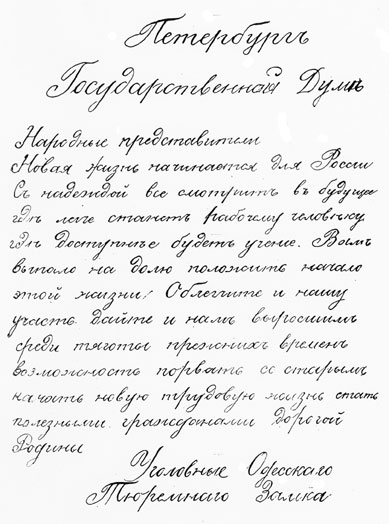 Петербургъ
Государственной Думѣ
Народные представители
Новая жизнь начинается для России
Съ надеждой все смотритъ въ будущее
гдѣ легче станетъ рабочему человѣку
гдѣ доступнѣе будетъ учение. Вамъ
выпало на долю положить начало
этой жизни! Облегчите и нашу
участь дайте и намъ выросшимъ
среди тяготы прежнихъ временъ
возможность порвать со старымъ
начать новую трудовую жизнь стать
полезными гражданами дорогой
Родины
Уголовные Одесскаго
Тюремнаго Замка